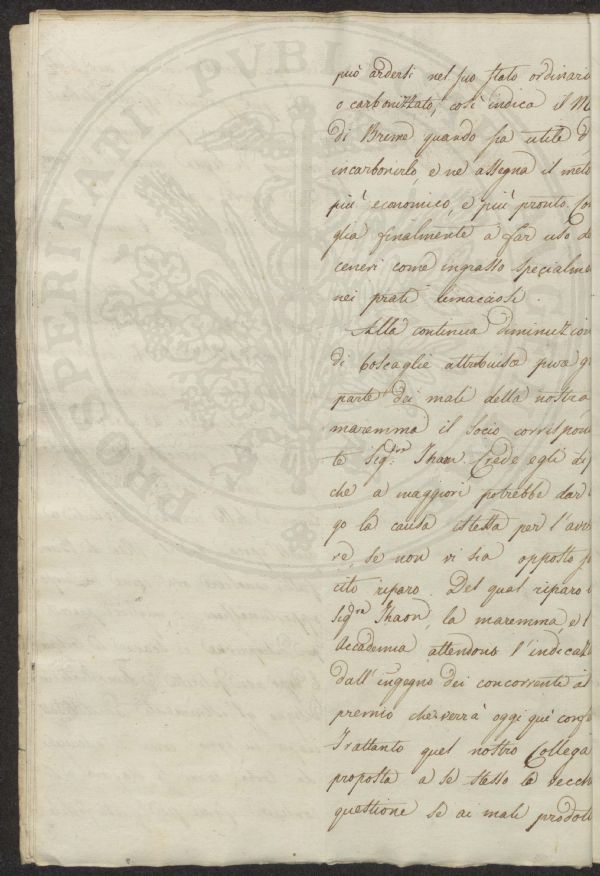 PROSPERITATI PUBLICAE
può ardersi nel suo stato ordinario
o carbonizzato, così indica il M
di Breme quando sia utile d
incarbonirlo, e ne assegna il meto
più economico, e più pronto. Con
glia finalmente a far uso de
ceneri come ingrasso specialme
nei prati limacciosi.
Alla continua diminuzion
di boscaglie attribuisce pure g
parte dei mali della nostra
maremma il Socio corrispon
te Sig.r Thaon. Crede egli di
che a maggiori potrebbe dar
go la causa istessa per l'avv
re, se non vi sia opposto
cito riparo. Del qual riparo
Sig.r Thaon, la maremma, e l
Accademia attendono l'indicaz
dall'ingegno dei concorrenti al
premio che verrà oggi quì conf
Frattanto quel nostro Collega
proposta a se stesso la vecch
questione se ai mali prodot